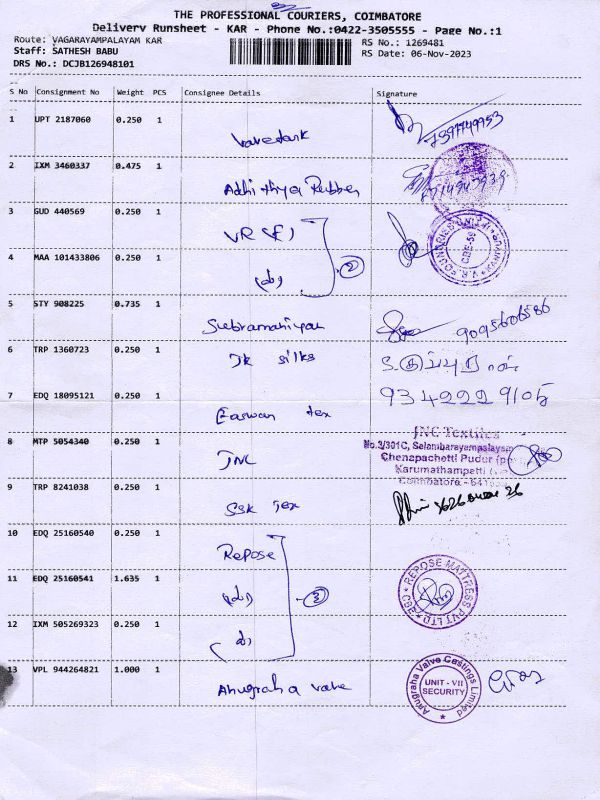 THE PROFESSIONAL COURIERS, COIMBATORE
Delivery Runsheet - KAR - Phone No.:0422-3505555 - Page No.:1
Route: VAGARAYAMPALAYAM KAR
RS No.: 1269481
Staff: SATHESH BABU
RS Date: 06-Nov-2023
DRS No.: DCJB126948101
S No Consignment No Weight PCS Consignee Details Signature
1 UPT 2187060 0.250 1
2 IXM 3460337 0.475 1
Adhithya Rubber
3 GUD 440569 0.250 1
VR (F)
4 MAA 101433806 0.250 1
(do) 2
5 STY 908225 0.735 1
Subramaniyan 9095606586
6 TRP 1360723 0.250 1
JK silks
7 EDQ 18095121 0.250 1
9342229105
Easwan tex
JNC Textiles
8 MTP 5054340 0.250 1
No.3/301C, Selambarayampalayam
JNC
Chenapachetti Pudur
Karumathampatti
Coimbatore - 641
9 TRP 8241038 0.250 1
SSK Tex
10 EDQ 25160540 0.250 1
Repose
REPOSE MATTRESS PVT LTD CBE
11 EDQ 25160541 1.635 1
(do) 3
12 IXM 505269323 0.250 1
(do)
13 VPL 944264821 1.000 1
Anugraha Valve
Anugraha Valve Castings Limited
UNIT - VII
SECURITY